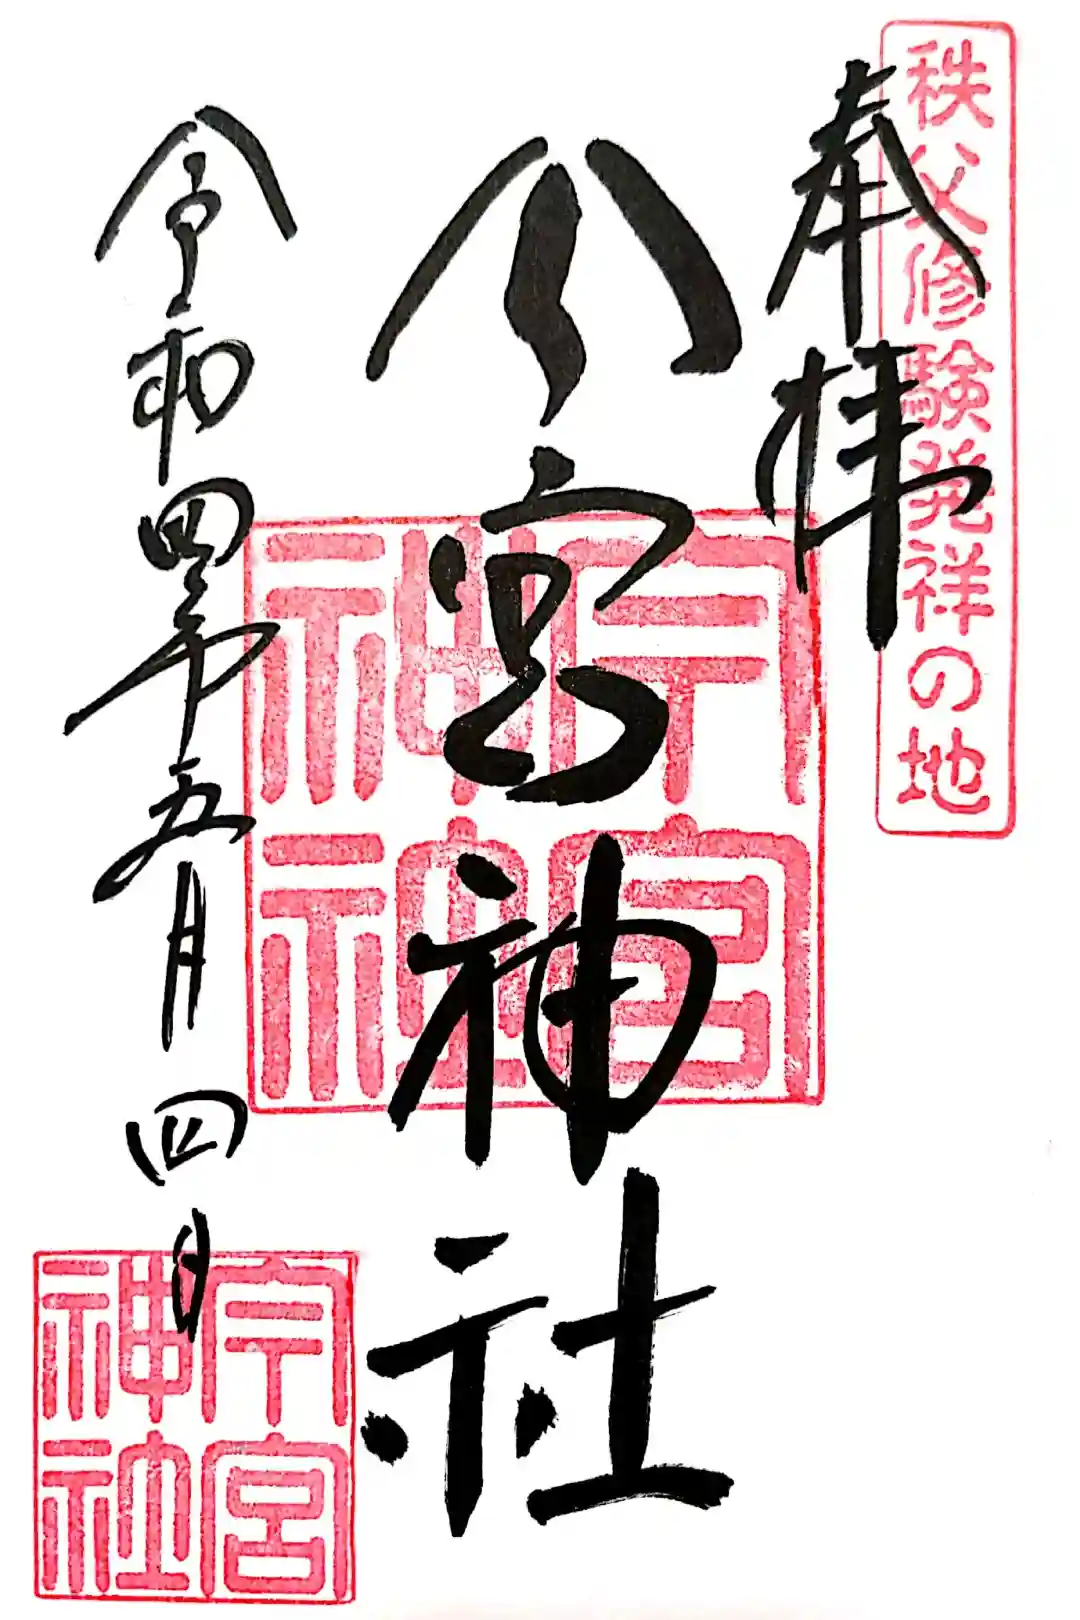 秩父修験発祥の地
奉拝
今宮神社
令和四年五月四日
今宮神社
今宮神社